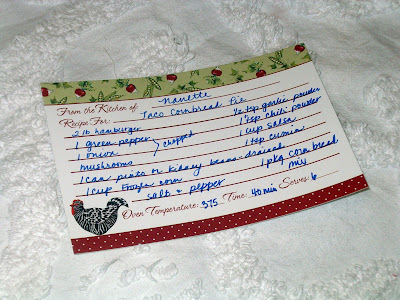 From the Kitchen of: Nanette
Recipe For: Taco Cornbread Pie
2 lb hamburger 1/2 tsp garlic powder
1 green pepper 1 tsp chili powder
1 onion } chopped 1 cup salsa
mushrooms 1 tsp cumin
1 can pinto or kidney beans - drained
1 cup frozen corn 1 pkg corn bread
salt & pepper mix
Oven Temperature: 375 Time: 40 min Serves: 6